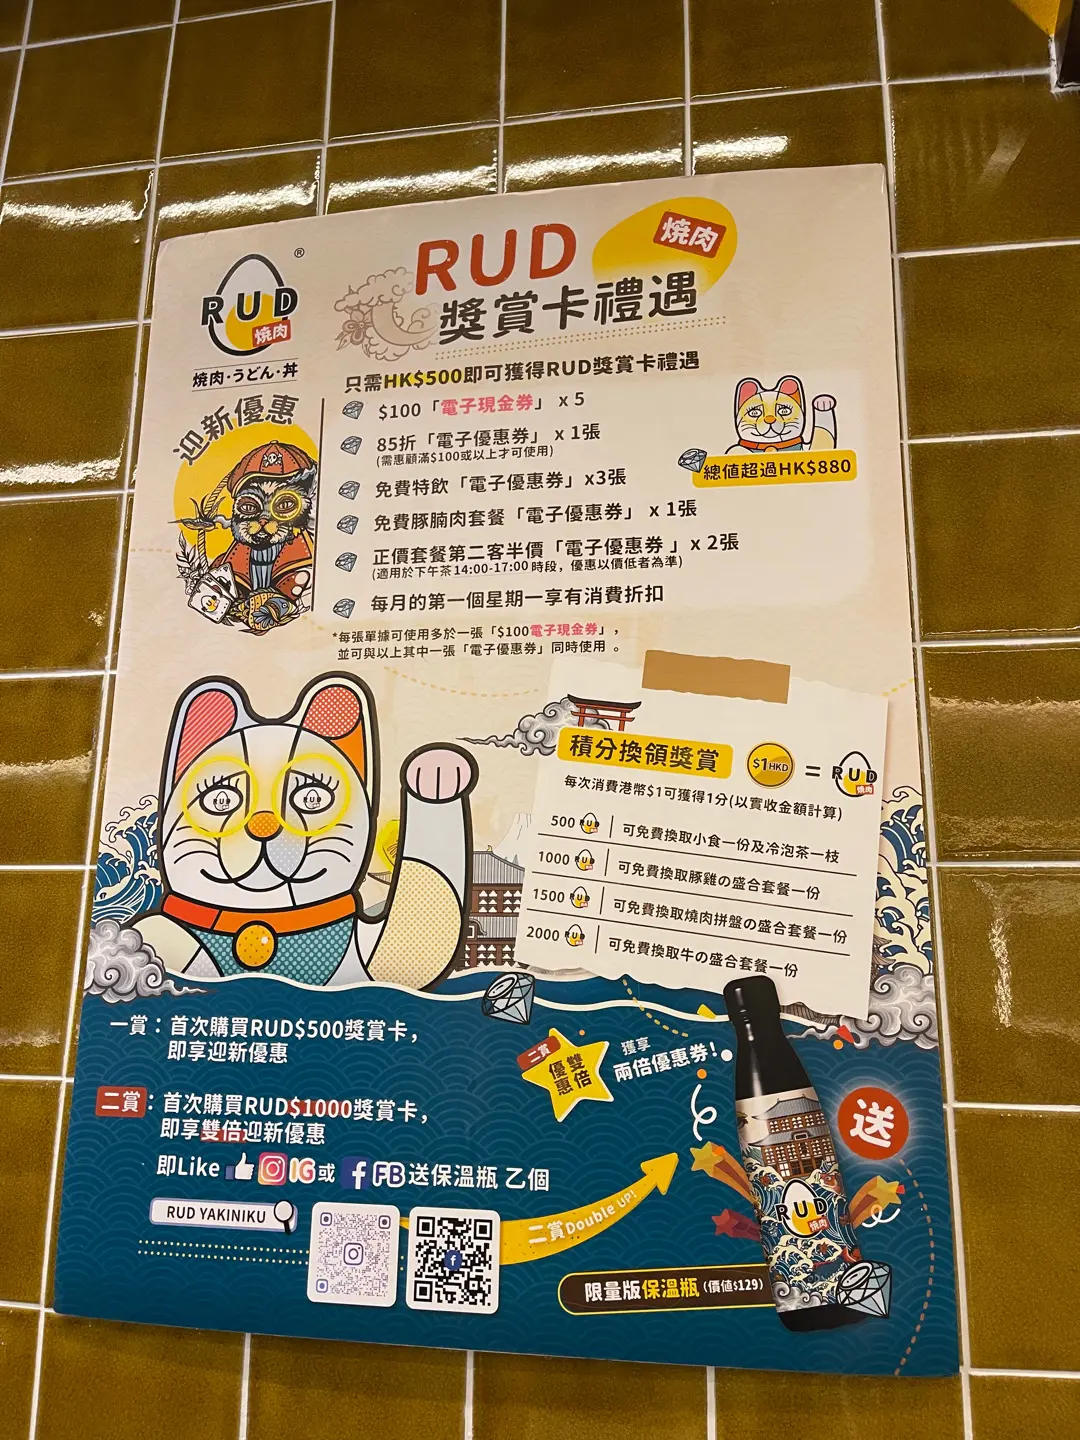 RUD
燒肉
獎賞卡禮遇
RUD
®
燒肉
焼肉·うどん·丼
迎新優惠
只需HK$500即可獲得RUD獎賞卡禮遇
$100「電子現金券」 x 5
85折「電子優惠券」 x 1張
(需惠顧滿$100或以上才可使用)
免費特飲「電子優惠券」x3張
免費豚腩肉套餐「電子優惠券」 x 1張
正價套餐第二客半價「電子優惠券 」x 2張
(適用於下午茶 14:00-17:00 時段，優惠以價低者為準)
每月的第一個星期一享有消費折扣
總值超過HK$880
*每張單據可使用多於一張「$100電子現金券」，
並可與以上其中一張「電子優惠券」同時使用 。
積分換領獎賞
$1HKD
=
RUD
燒肉
每次消費港幣$1可獲得1分(以實收金額計算)
500 RUD | 可免費換取小食一份及冷泡茶一枝
1000 RUD | 可免費換取豚雞の盛合套餐一份
1500 RUD | 可免費換取燒肉拼盤の盛合套餐一份
2000 RUD | 可免費換取牛の盛合套餐一份
一賞：首次購買RUD$500獎賞卡，
即享迎新優惠
二賞：首次購買RUD$1000獎賞卡，
即享雙倍迎新優惠
即Like IG或 f FB送保溫瓶 乙個
二賞
雙倍
優惠
獲享
兩倍優惠券!
送
RUD YAKINIKU
f
二賞Double UP!
RUD
燒肉
限量版保溫瓶 (價值$129)